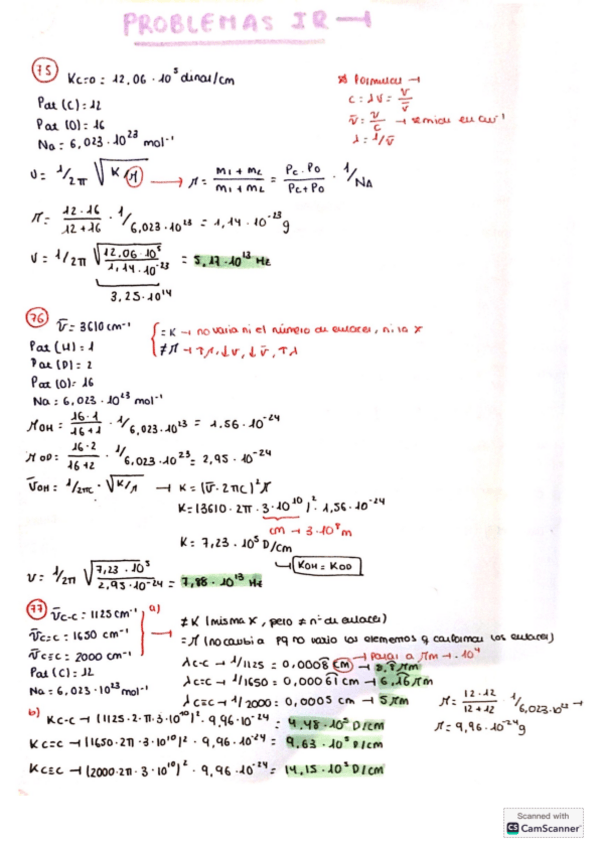 PROBLEMAS IR →
75 Kc=o = 12,06 · 10⁵ dinas/cm
* Formulas →
c = λν = ν/ν̄
ν̄ = ν/c → se mide en cm⁻¹
λ = 1/ν̄
Pat (C) = 12
Pat (O) = 16
Na = 6,023 · 10²³ mol⁻¹
ν = 1/2π √K/μ → μ = m1 + m2 / m1 + m2 = Pc · Po / Pc + Po · 1/NA
μ = 12 · 16 / 12 + 16 · 1/6,023 · 10²³ = 1,14 · 10⁻²³ g
ν = 1/2π √12,06 · 10⁵ / 1,14 · 10⁻²³ = 5,17 · 10¹³ Hz
3,25 · 10¹⁴
76 ν̄ = 3610 cm⁻¹
= K → no varia ni el número de enlaces, ni la x
≠ μ → ↑μ, ↓ν, ↓ν̄, ↑λ
Pat (H) = 1
Pat (D) = 2
Pat (O) = 16
Na = 6,023 · 10²³ mol⁻¹
μOH = 16 · 1 / 16 + 1 · 1/6,023 · 10²³ = 1,56 · 10⁻²⁴
μOD = 16 · 2 / 16 + 2 · 1/6,023 · 10²³ = 2,95 · 10⁻²⁴
ν̄OH = 1/2πc · √K/μ → K = (ν̄ · 2πc)² μ
K = (3610 · 2π · 3 · 10¹⁰)² · 1,56 · 10⁻²⁴
cm → 3 · 10⁸ m
K = 7,23 · 10⁵ D/cm
KOH = KOD
ν = 1/2π √7,23 · 10⁵ / 2,95 · 10⁻²⁴ = 7,88 · 10¹³ Hz
77 ν̄c-c = 1125 cm⁻¹ a)
ν̄c=c = 1650 cm⁻¹
ν̄c≡c = 2000 cm⁻¹
Pat (C) = 12
Na = 6,023 · 10²³ mol⁻¹
≠ K (misma x, pero ≠ nº de enlaces)
= μ (no cambia pq no vario los elementos q conforman los enlaces)
λc-c → 1/1125 = 0,0008 cm → 8,8 μm
→ pasar a μm → · 10⁴
λc=c → 1/1650 = 0,00061 cm → 6,16 μm
λc≡c → 1/2000 = 0,0005 cm → 5 μm
μ = 12 · 12 / 12 + 12 · 1/6,023 · 10²³ →
μ = 9,96 · 10⁻²⁴ g
b) Kc-c → (1125 · 2 · π · 3 · 10¹⁰)² · 9,96 · 10⁻²⁴ = 4,48 · 10⁵ D/cm
Kc=c → (1650 · 2π · 3 · 10¹⁰)² · 9,96 · 10⁻²⁴ = 9,63 · 10⁵ D/cm
Kc≡c → (2000 · 2π · 3 · 10¹⁰)² · 9,96 · 10⁻²⁴ = 14,15 · 10⁵ D/cm
Scanned with
CS CamScanner